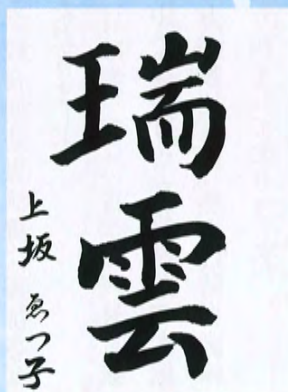 瑞雲
上坂ゑつ子